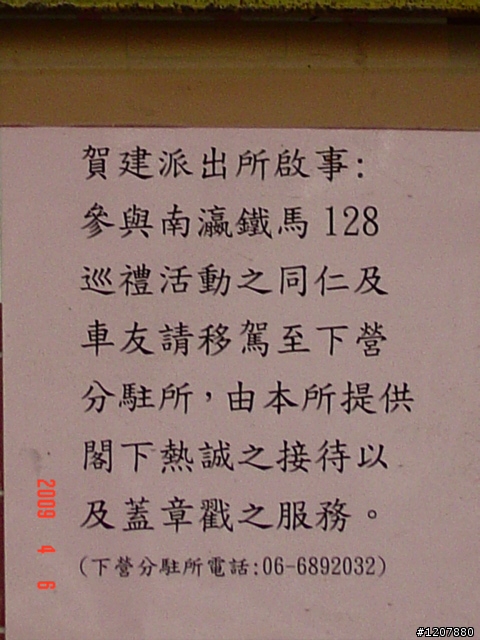 賀建派出所啟事:
參與南瀛鐵馬128
巡禮活動之同仁及
車友請移駕至下營
分駐所，由本所提供
閣下熱誠之接待以
及蓋章戳之服務。
(下營分駐所電話:06-6892032)
2009 4 6
#1207880